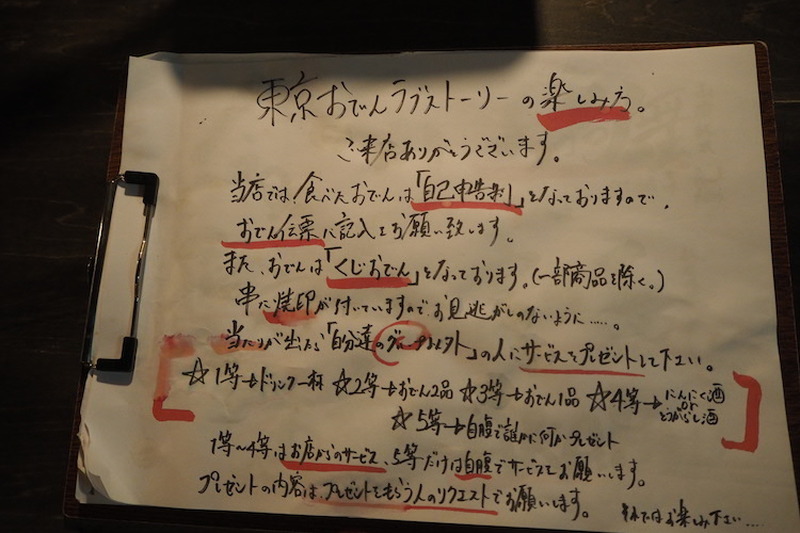 東京おでんラブストーリーの楽しみ方。
ご来店ありがとうございます。
当店では、食べたおでんは「自己申告制」となっておりますので、
おでん伝票に記入をお願い致します。
また、おでんは「くじおでん」となっております。(一部商品を除く。)
串に焼印が付いていますので、お見逃がしのないように……。
当たりが出たら「自分達のグループ以外」の人にサービスをプレゼントして下さい。
☆1等→ドリンク一杯 ☆2等→おでん2品 ☆3等→おでん1品 ☆4等→にんにく酒 or とうがらし酒
☆5等→自腹で誰かに何かプレゼント
1等〜4等はお店からのサービス、5等だけは自腹でサービスをお願いします。
プレゼントの内容は、プレゼントをもらう人のリクエストでお願いします。
それではお楽しみ下さい……